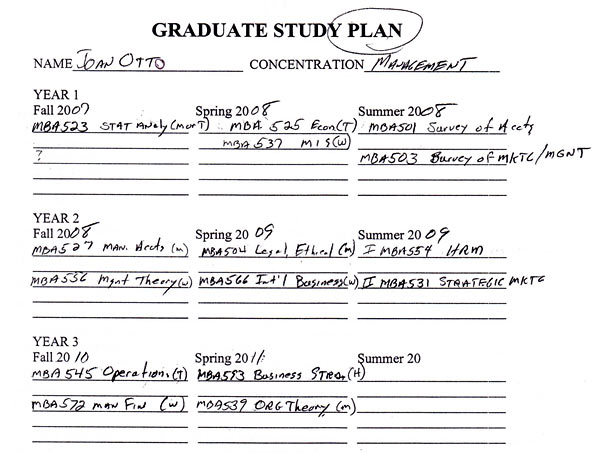 GRADUATE STUDY PLAN
NAME JOAN OTTO CONCENTRATION MANAGEMENT
YEAR 1
Fall 2007 Spring 2008 Summer 2008
MBA523 STAT Analy (M or T) MBA 525 Econ (T) MBA501 Survey of Acctg
? MBA 537 MIS (W) MBA503 Survey of MKTG/MGNT
YEAR 2
Fall 2008 Spring 20 09 Summer 20 09
MBA527 MAN. Acctg (M) MBA504 Legal, Ethical (M) I MBA554 HRM
MBA556 Mgnt Theory (W) MBA566 Int'l Business (W) II MBA531 STRATEGIC MKTG
YEAR 3
Fall 2010 Spring 2011 Summer 20
MBA545 Operations (T) MBA593 Business STRAT (H)
MBA572 MAN FIN (W) MBA539 ORG Theory (M)